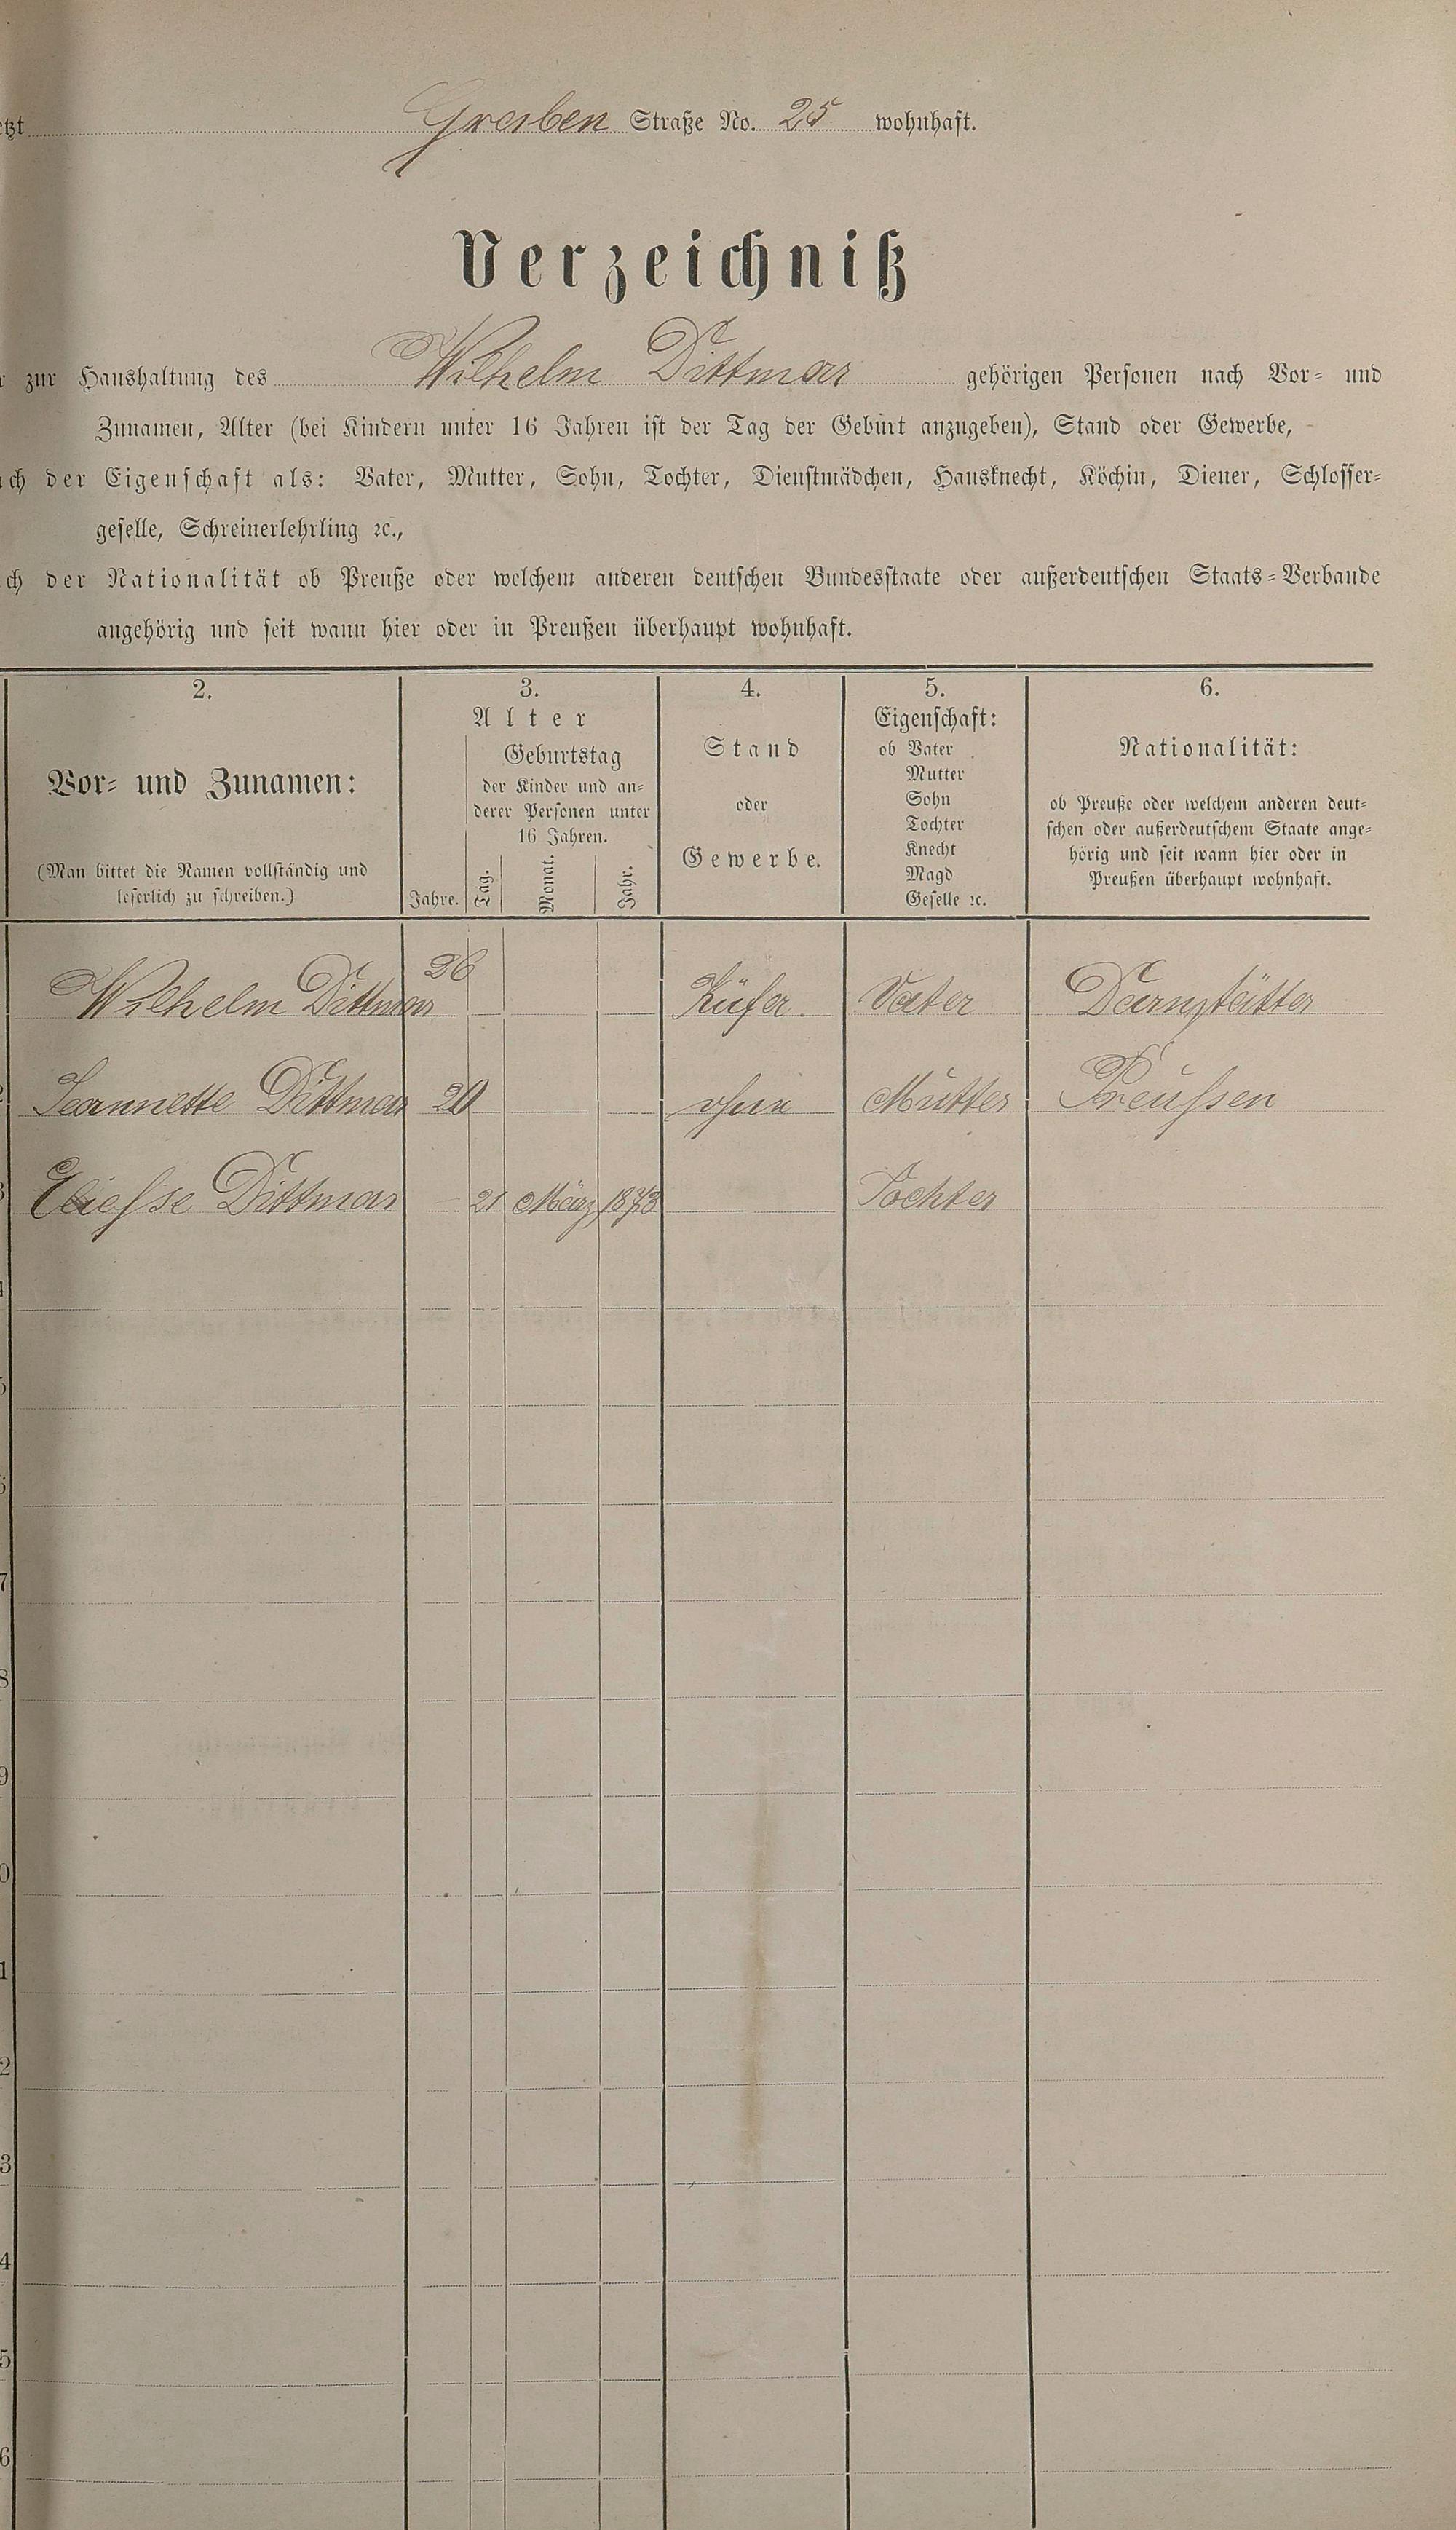 etzt Graben Straße No. 25 wohnhaft.
Verzeichniß
r zur Haushaltung des Wilhelm Dittmar gehörigen Personen nach Vor- und
Zunamen, Alter (bei Kindern unter 16 Jahren ist der Tag der Geburt anzugeben), Stand oder Gewerbe,
ch der Eigenschaft als: Vater, Mutter, Sohn, Tochter, Dienstmädchen, Hausknecht, Köchin, Diener, Schlosser-
geselle, Schreinerlehrling ꝛc.,
ch der Nationalität ob Preuße oder welchem anderen deutschen Bundesstaate oder außerdeutschen Staats-Verbande
angehörig und seit wann hier oder in Preußen überhaupt wohnhaft.
2.
Vor- und Zunamen:
(Man bittet die Namen vollständig und
leserlich zu schreiben.)
3.
Alter
Geburtstag
der Kinder und an-
derer Personen unter
16 Jahren.
Jahre. Tag. Monat. Jahr.
4.
Stand
oder
Gewerbe.
5.
Eigenschaft:
ob Vater
Mutter
Sohn
Tochter
Knecht
Magd
Geselle ꝛc.
6.
Nationalität:
ob Preuße oder welchem anderen deut-
schen oder außerdeutschem Staate ange-
hörig und seit wann hier oder in
Preußen überhaupt wohnhaft.
Wilhelm Dittmar 26 Küfer. Vater Darmstätter
2 Jeannette Dittmar 20 ohne Mutter Preußen
3 Dittmar 21 März 1873 Tochter
4
5
6
7
8
9
0
1
2
3
4
5
6